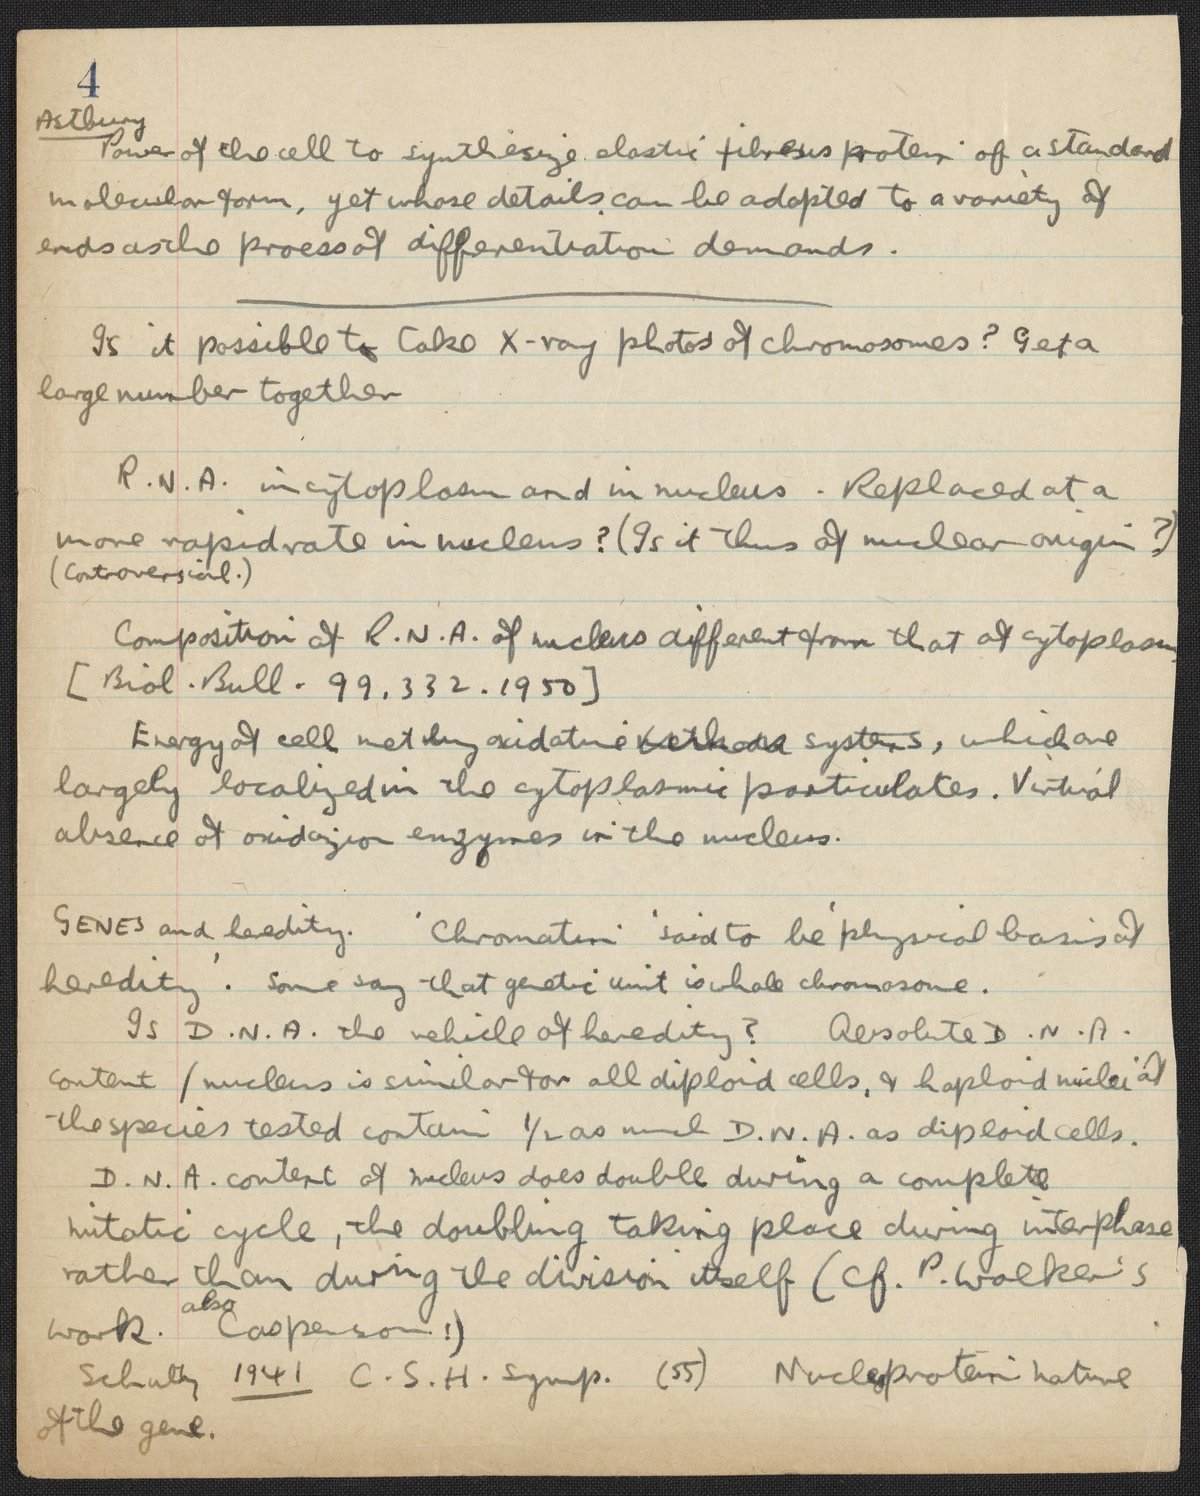 4
Astbury
Power of the cell to synthesize elastic fibrous protein of a standard
molecular form, yet whose details can be adapted to a variety of
ends as the process of differentiation demands.
Is it possible to take X-ray photos of chromosomes? Get a
large number together
R.N.A. in cytoplasm and in nucleus. Replaced at a
more rapid rate in nucleus? (Is it thus of nuclear origin?)
(Controversial.)
Composition of R.N.A. of nucleus different from that of cytoplasm
[Biol. Bull. 99, 332. 1950]
Energy of cell met by oxidative systems, which are
largely localized in the cytoplasmic particulates. Virtual
absence of oxidazion enzymes in the nucleus.
GENES and heredity. 'Chromatin' said to be 'physical basis of
heredity'. Some say that genetic unit is whole chromosome.
Is D.N.A. the vehicle of heredity? Absolute D.N.A.
content / nucleus is similar for all diploid cells, & haploid nuclei of
the species tested contain 1/2 as much D.N.A. as diploid cells.
D.N.A. content of nucleus does double during a complete
mitotic cycle, the doubling taking place during interphase
rather than during the division itself (Cf. P. Walker's
work. also Casperson!)
Schultz 1941 C.S.H. Symp. (55) Nucleoprotein nature
of the gene.